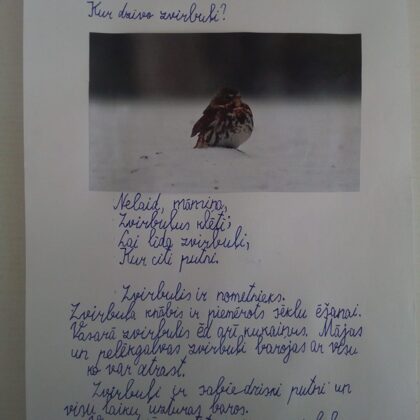 Kur dzīvo zvirbuļi?
Nelaid, māmiņa,
Zvirbulus klētī;
Lai lido zvirbuļi,
Kur citi putni.
Zvirbulis ir nometnieks.
Zvirbuļa knābis ir piemērots sēklu ēšanai.
Vasarā zvirbulis ēd arī kukaiņus. Mājas
un pelēkgalvas zvirbuļi barojas ar visu
ko var atrast.
Zvirbuļi ir sabiedriski putni un
visu laiku uzturas baros.